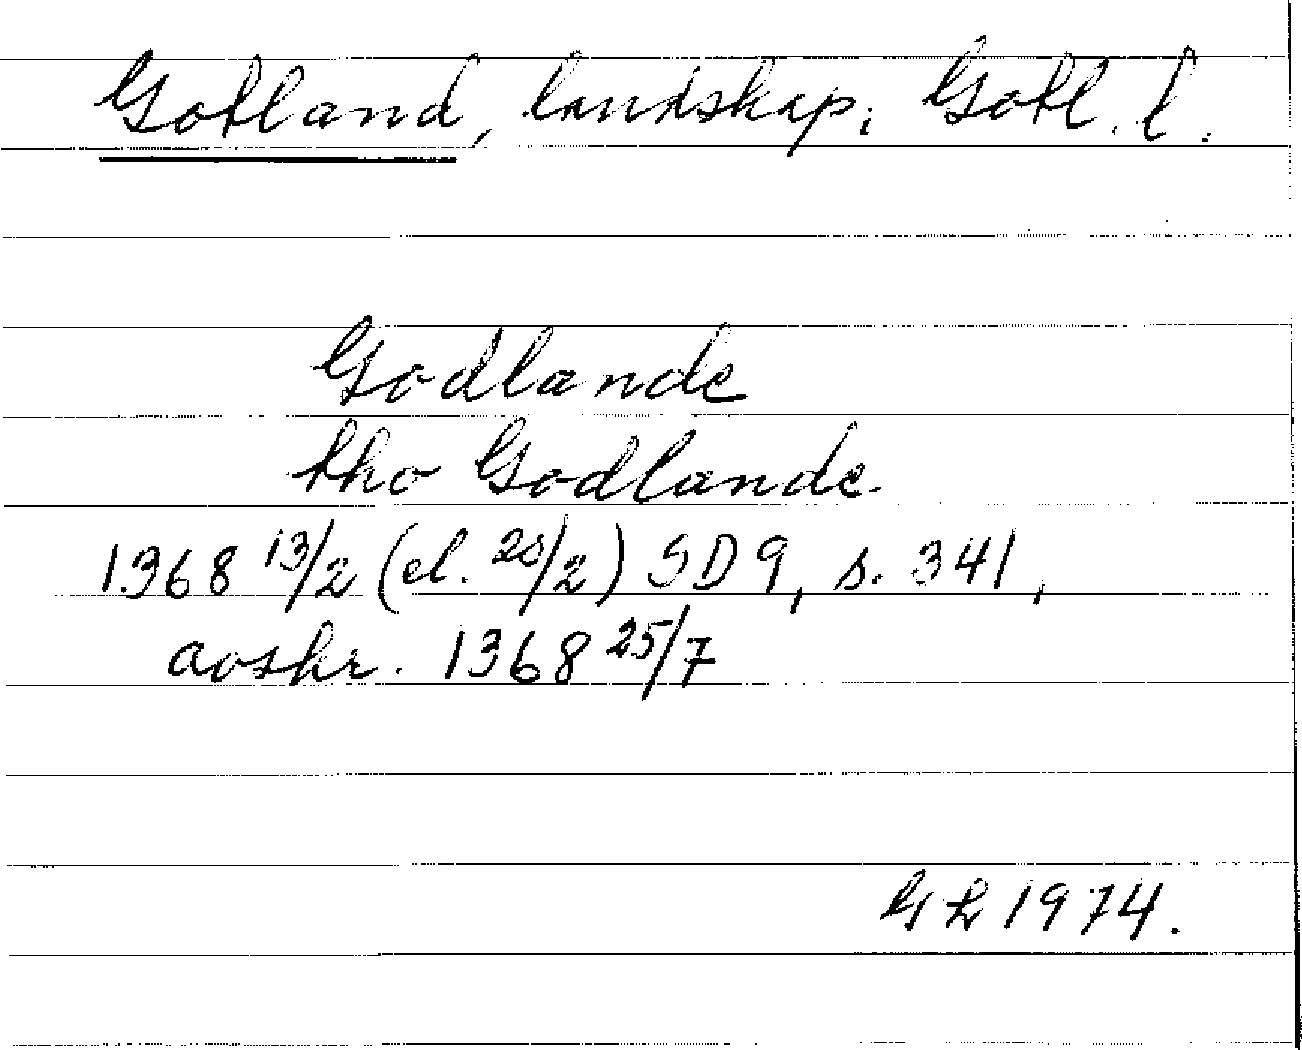 Gotland, landskap; Gotl. l.
Godlande
tho Godlande.
1368 13/2 (el. 20/2) SD 9, s. 341,
avskr. 1368 25/7
GL 1974.